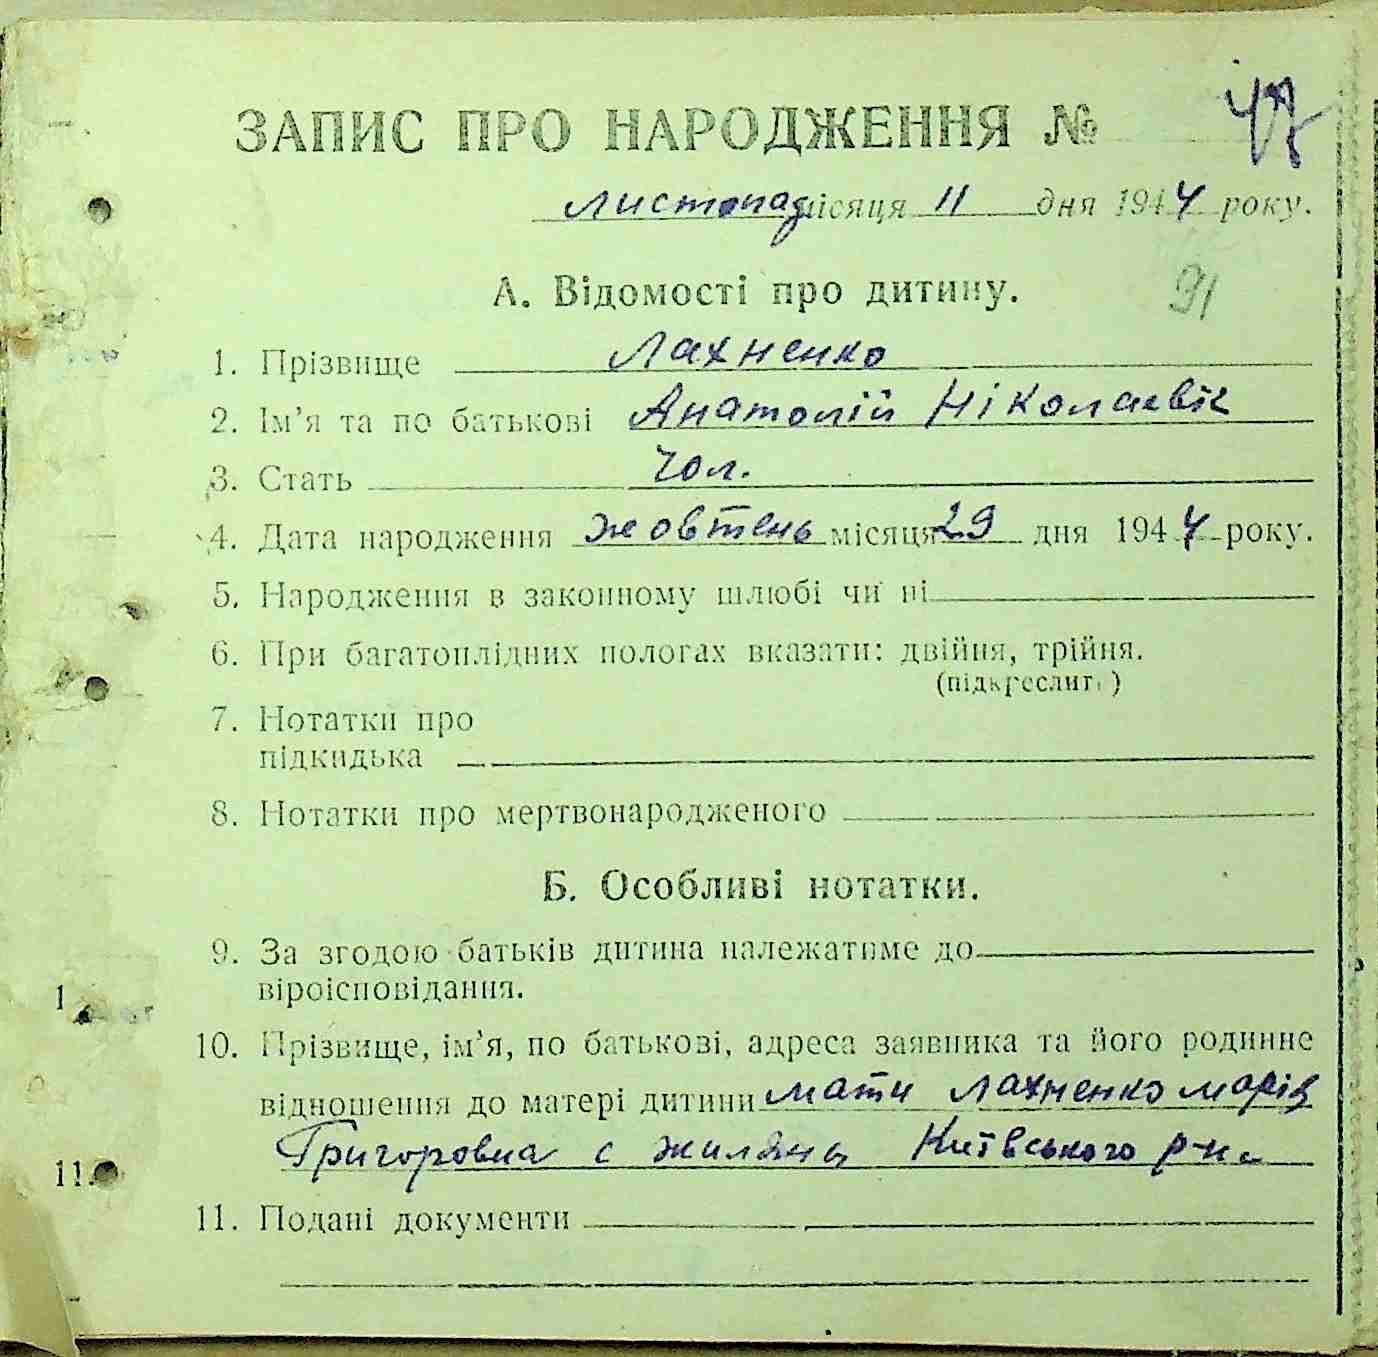 ЗАПИС ПРО НАРОДЖЕННЯ № 47
листопад місяця 11 дня 1944 року.
91
А. Відомості про дитину.
1. Прізвище Лахненко
2. Ім’я та по батькові Анатолій Ніколаєвіч
3. Стать чол.
4. Дата народження жовтень місяця 29 дня 1944 року.
5. Народження в законному шлюбі чи ні
6. При багатоплідних пологах вказати: двійня, трійня.
(підкреслить)
7. Нотатки про
підкидька
8. Нотатки про мертвонародженого
Б. Особливі нотатки.
9. За згодою батьків дитина належатиме до
віроісповідання.
10. Прізвище, ім’я, по батькові, адреса заявника та його родинне
відношення до матері дитини мати Лахненко Марія
Григоровна с Жиляны Київського р-на
11. Подані документи
1
11.